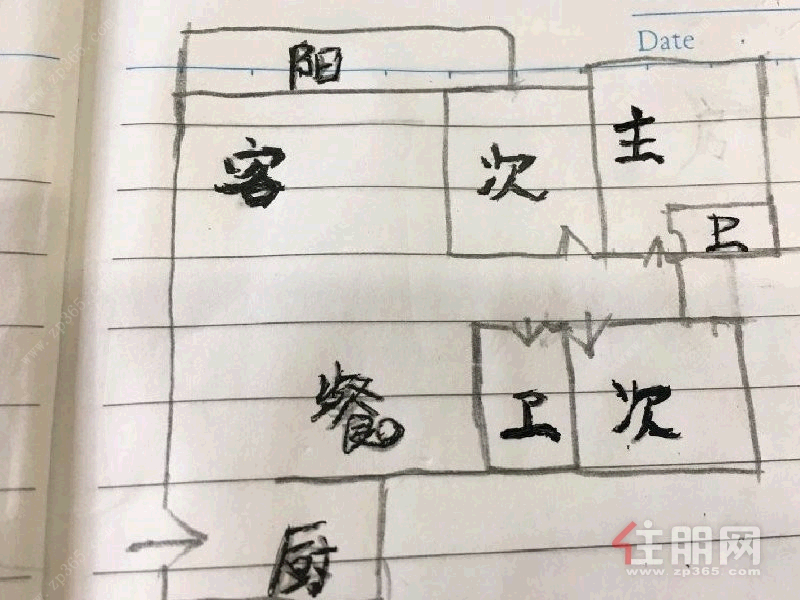 Date
阳
客 次 主
卫
餐 卫 次
厨
住朋网
www.zp365.com